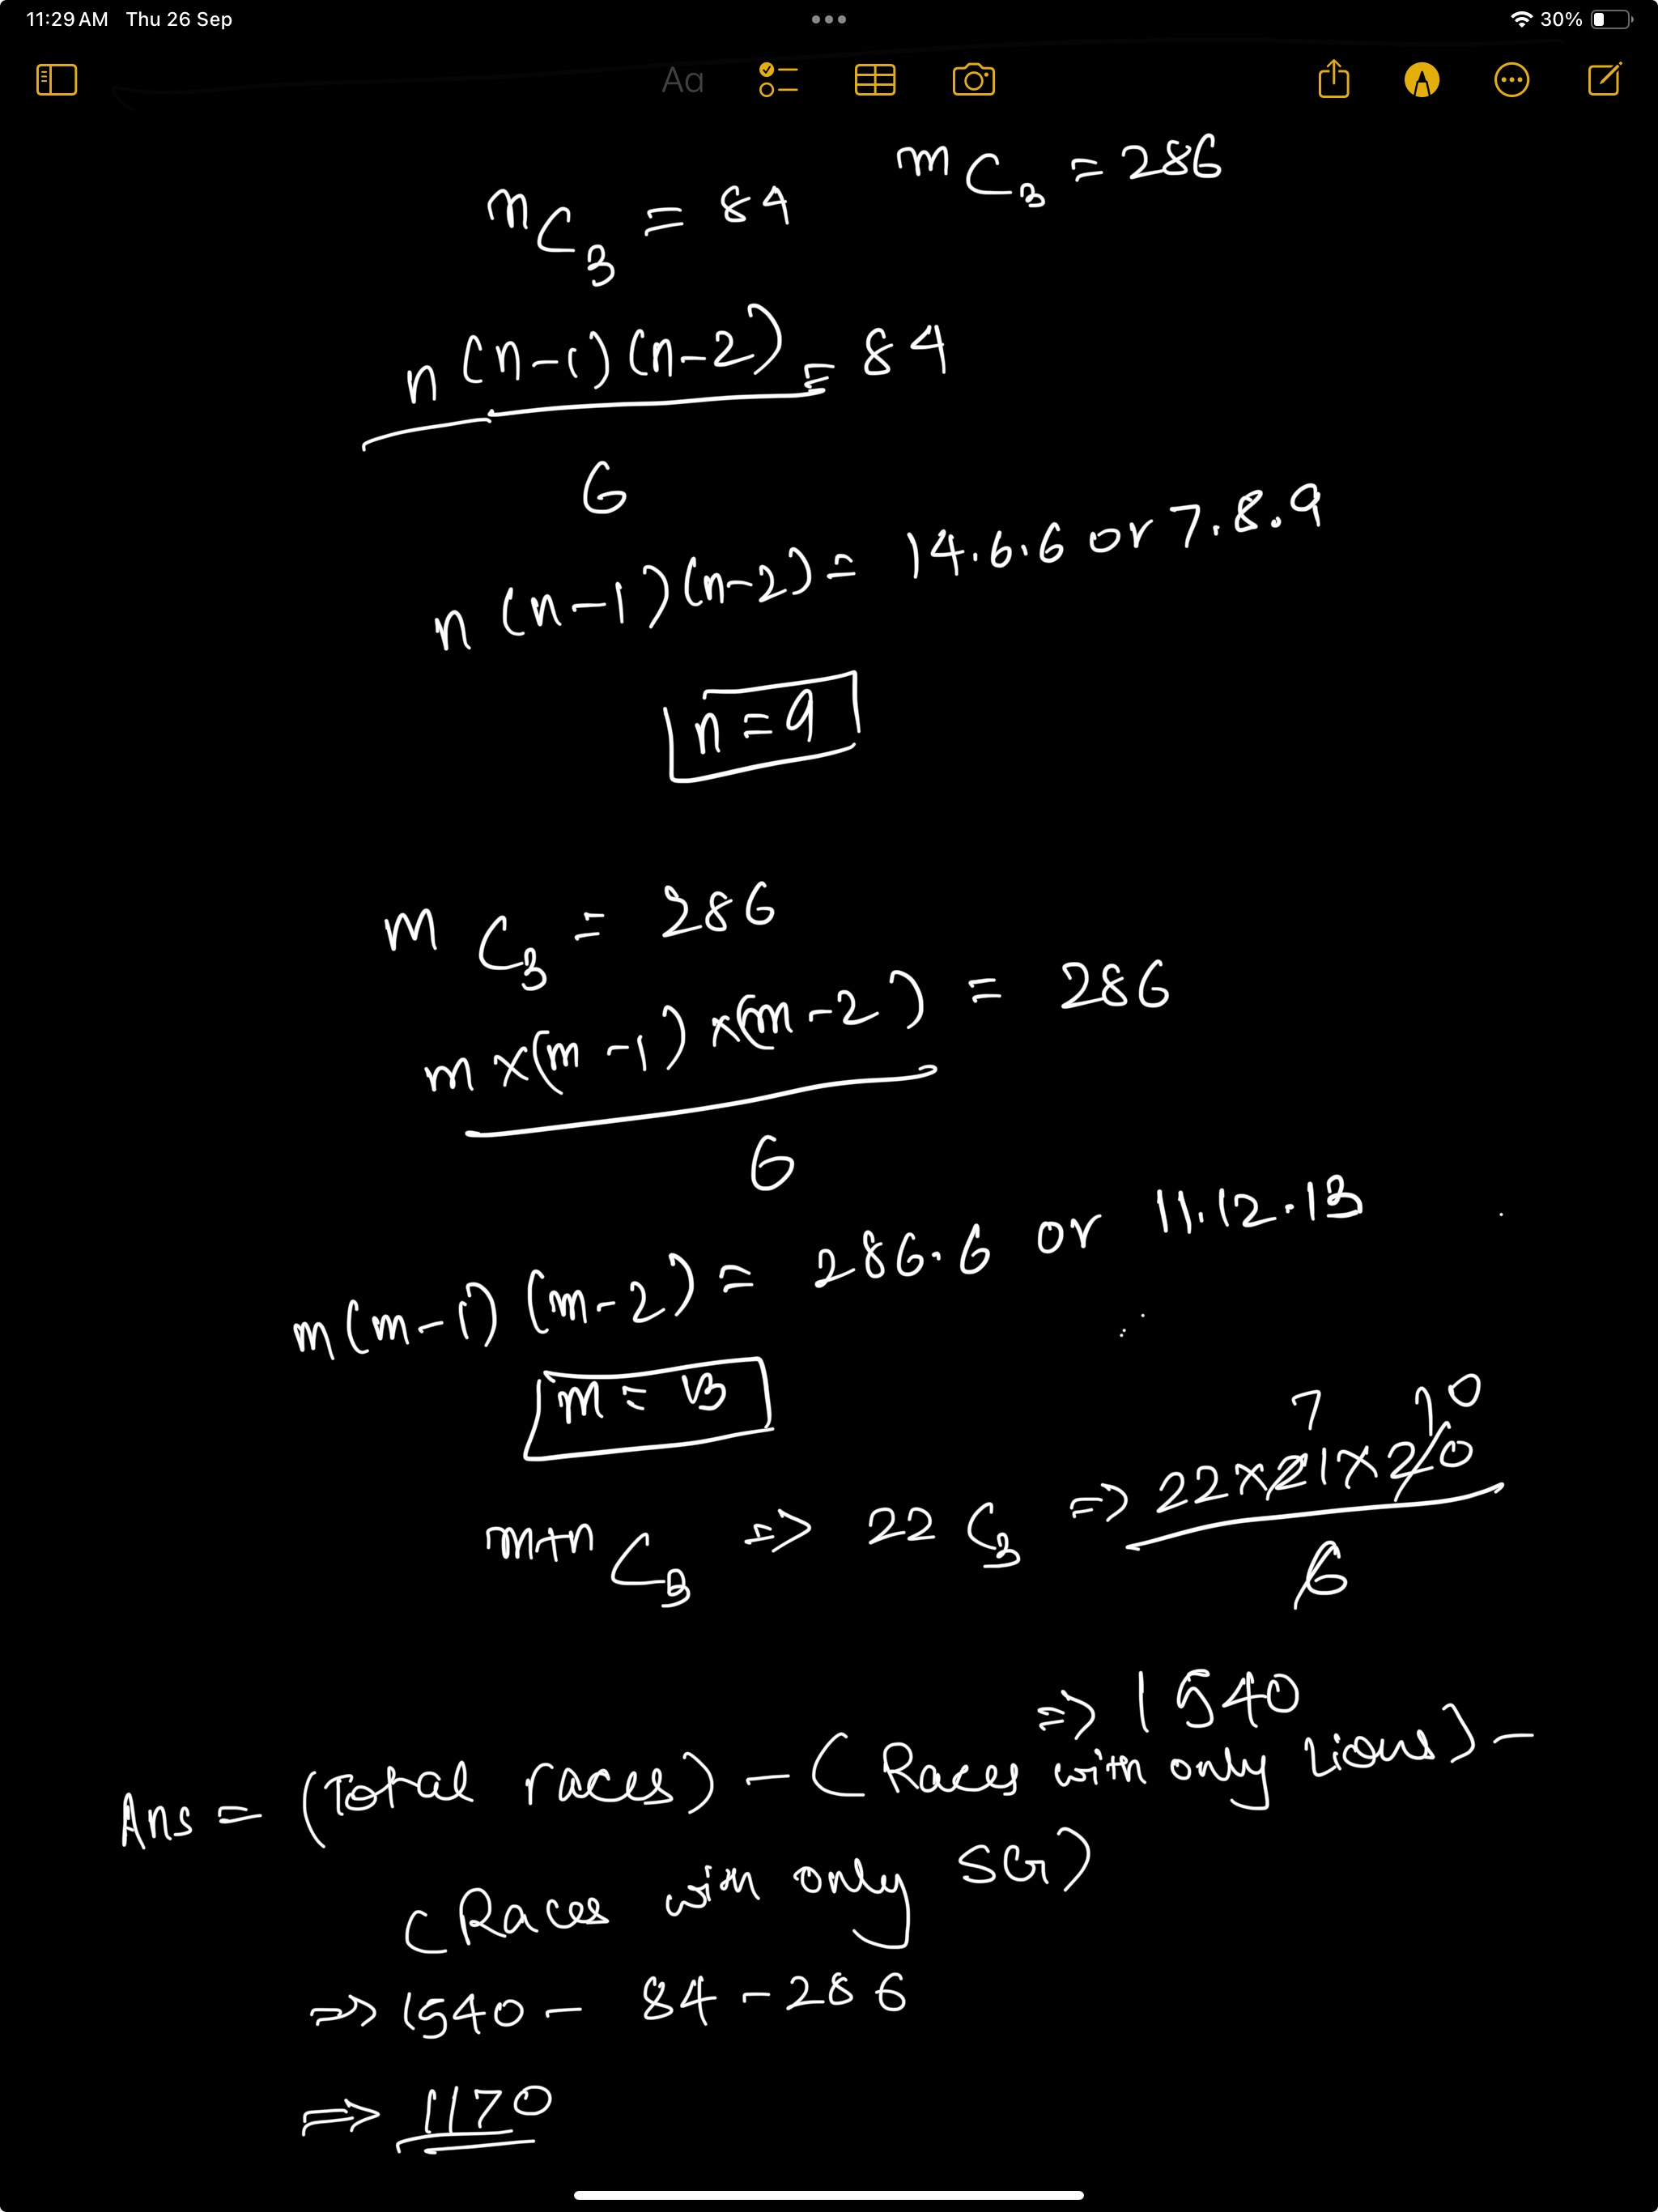 11:29 AM Thu 26 Sep
30%
Aa
nC3 = 84 mC3 = 286
n(n-1)(n-2) = 84
6
n(n-1)(n-2) = 14.6.6 or 7.8.9
n = 9
mC3 = 286
m×(m-1)×(m-2) = 286
6
m(m-1)(m-2) = 286.6 or 11.12.13
m = 13
7 10
m+nC3 => 22C3 => 22×21×20
6
=> 1540
Ans = (Total races) - (Races with only Lions) -
(Races with only SG)
=> 1540 - 84 - 286
=> 1170